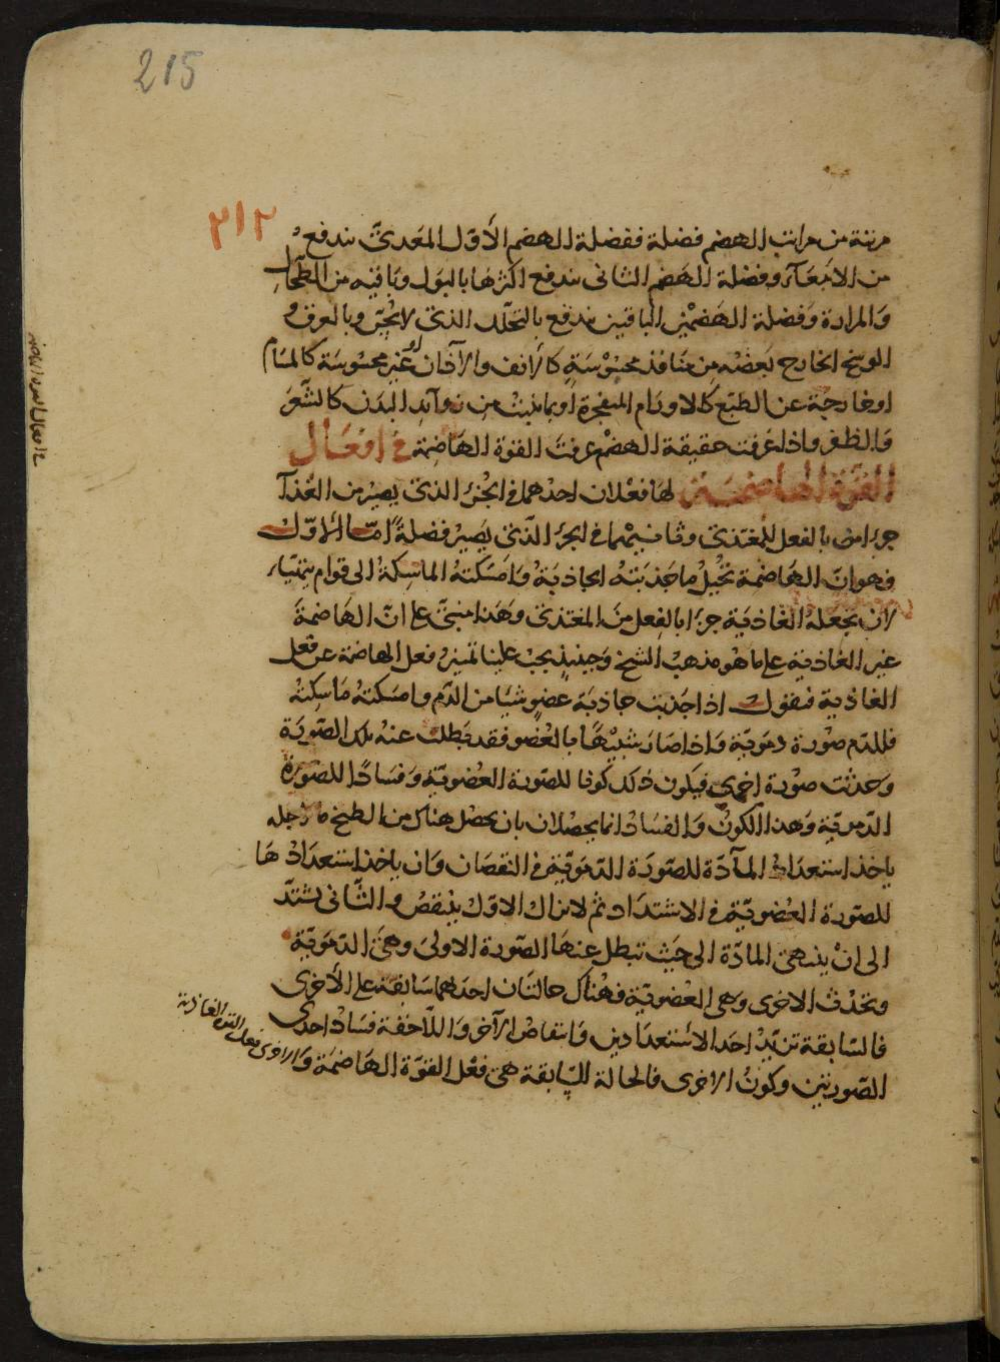 215
٢١٢
مرتبة من مراتب الهضم فضلة ففضلة الهضم الأوّل المعدىّ يندفع
من الامعآء وفضلة الهضم الثانى يندفع اكثرها بالبول وباقيه من الطحال
والمرارة وفضلة الهضمين الباقين يندفع بالتحلّل الذى لا يُحَسّ وبالعرق و
الوسخ الخارج بعضه من منافذ محسوسةٍ كالأنف والآذان او غير محسوسة كالمسام
او خارجة عن الطبع كالاورام المنفجرة او بما ينبت من زوآيد البدن كالشعر
والظفر واذا عرفت حقيقة الهضم عرفت القوة الهاضمة فى افعال
القوّة الهاضمة لها فعلان احدهما فى الجزء الذى يصير من الغذآ
جزءا بالفعل للمغتذى وثانيهما فى الجزء الذى يصير فضلةً امّا الاوّل
فهو انّ الهاضمة تحيل ما جذبته الجاذبة وامسكته الماسكة الى قوام يتهيّاء
لان تجعله الغاذية جزءا بالفعل من المغتذى وهذا مبنىّ على انّ الهاضمة
غير الغاذية على ما هو مذهب الشيخ وحينئذٍ يجب علينا تمييز فعل الهاضمة عن فعل
الغاذية فنقول اذا جذبت جاذبة عضوٍ شيئا من الدّم وامسكته ماسكته
فللدّم صورة دمويّة واذا صار شبيهًا بالعضو فقد بطلت عنه تلك الصّورة
وحدثت صورة اخرى فيكون ذلك كونا للصّورة العضويّة وفسادًا للصّورة
الدّمويّة وهذا الكون والفساد انما يحصلان بان يحصل هناك من الطبخ ما لاجله
ياخذ استعداد المآدّة للصّورة الدّمويّة فى النقصان وان ياخذ استعدادها
للصّورة العضويّة فى الاشتداد ثم لا يزال الاوّل ينقص والثّانى يشتدّ
الى انْ ينتهى المادّة الى حيث تبطل عنها الصّورة الاولى وهى الدّمويّة
وتحدث الاخرى وهى العضويّة فهناك حالتان احدٰهما سابقة على الأخرى
فالسّابقة تزيّد احد الاستعدادين وانتقاص الآخر واللّاحقة فساد احدى
الصّورتين وكون الاخرى فالحالة السّابقة هى فعل القوّة الهاضمة والاخرى فعل القوة الغاذية